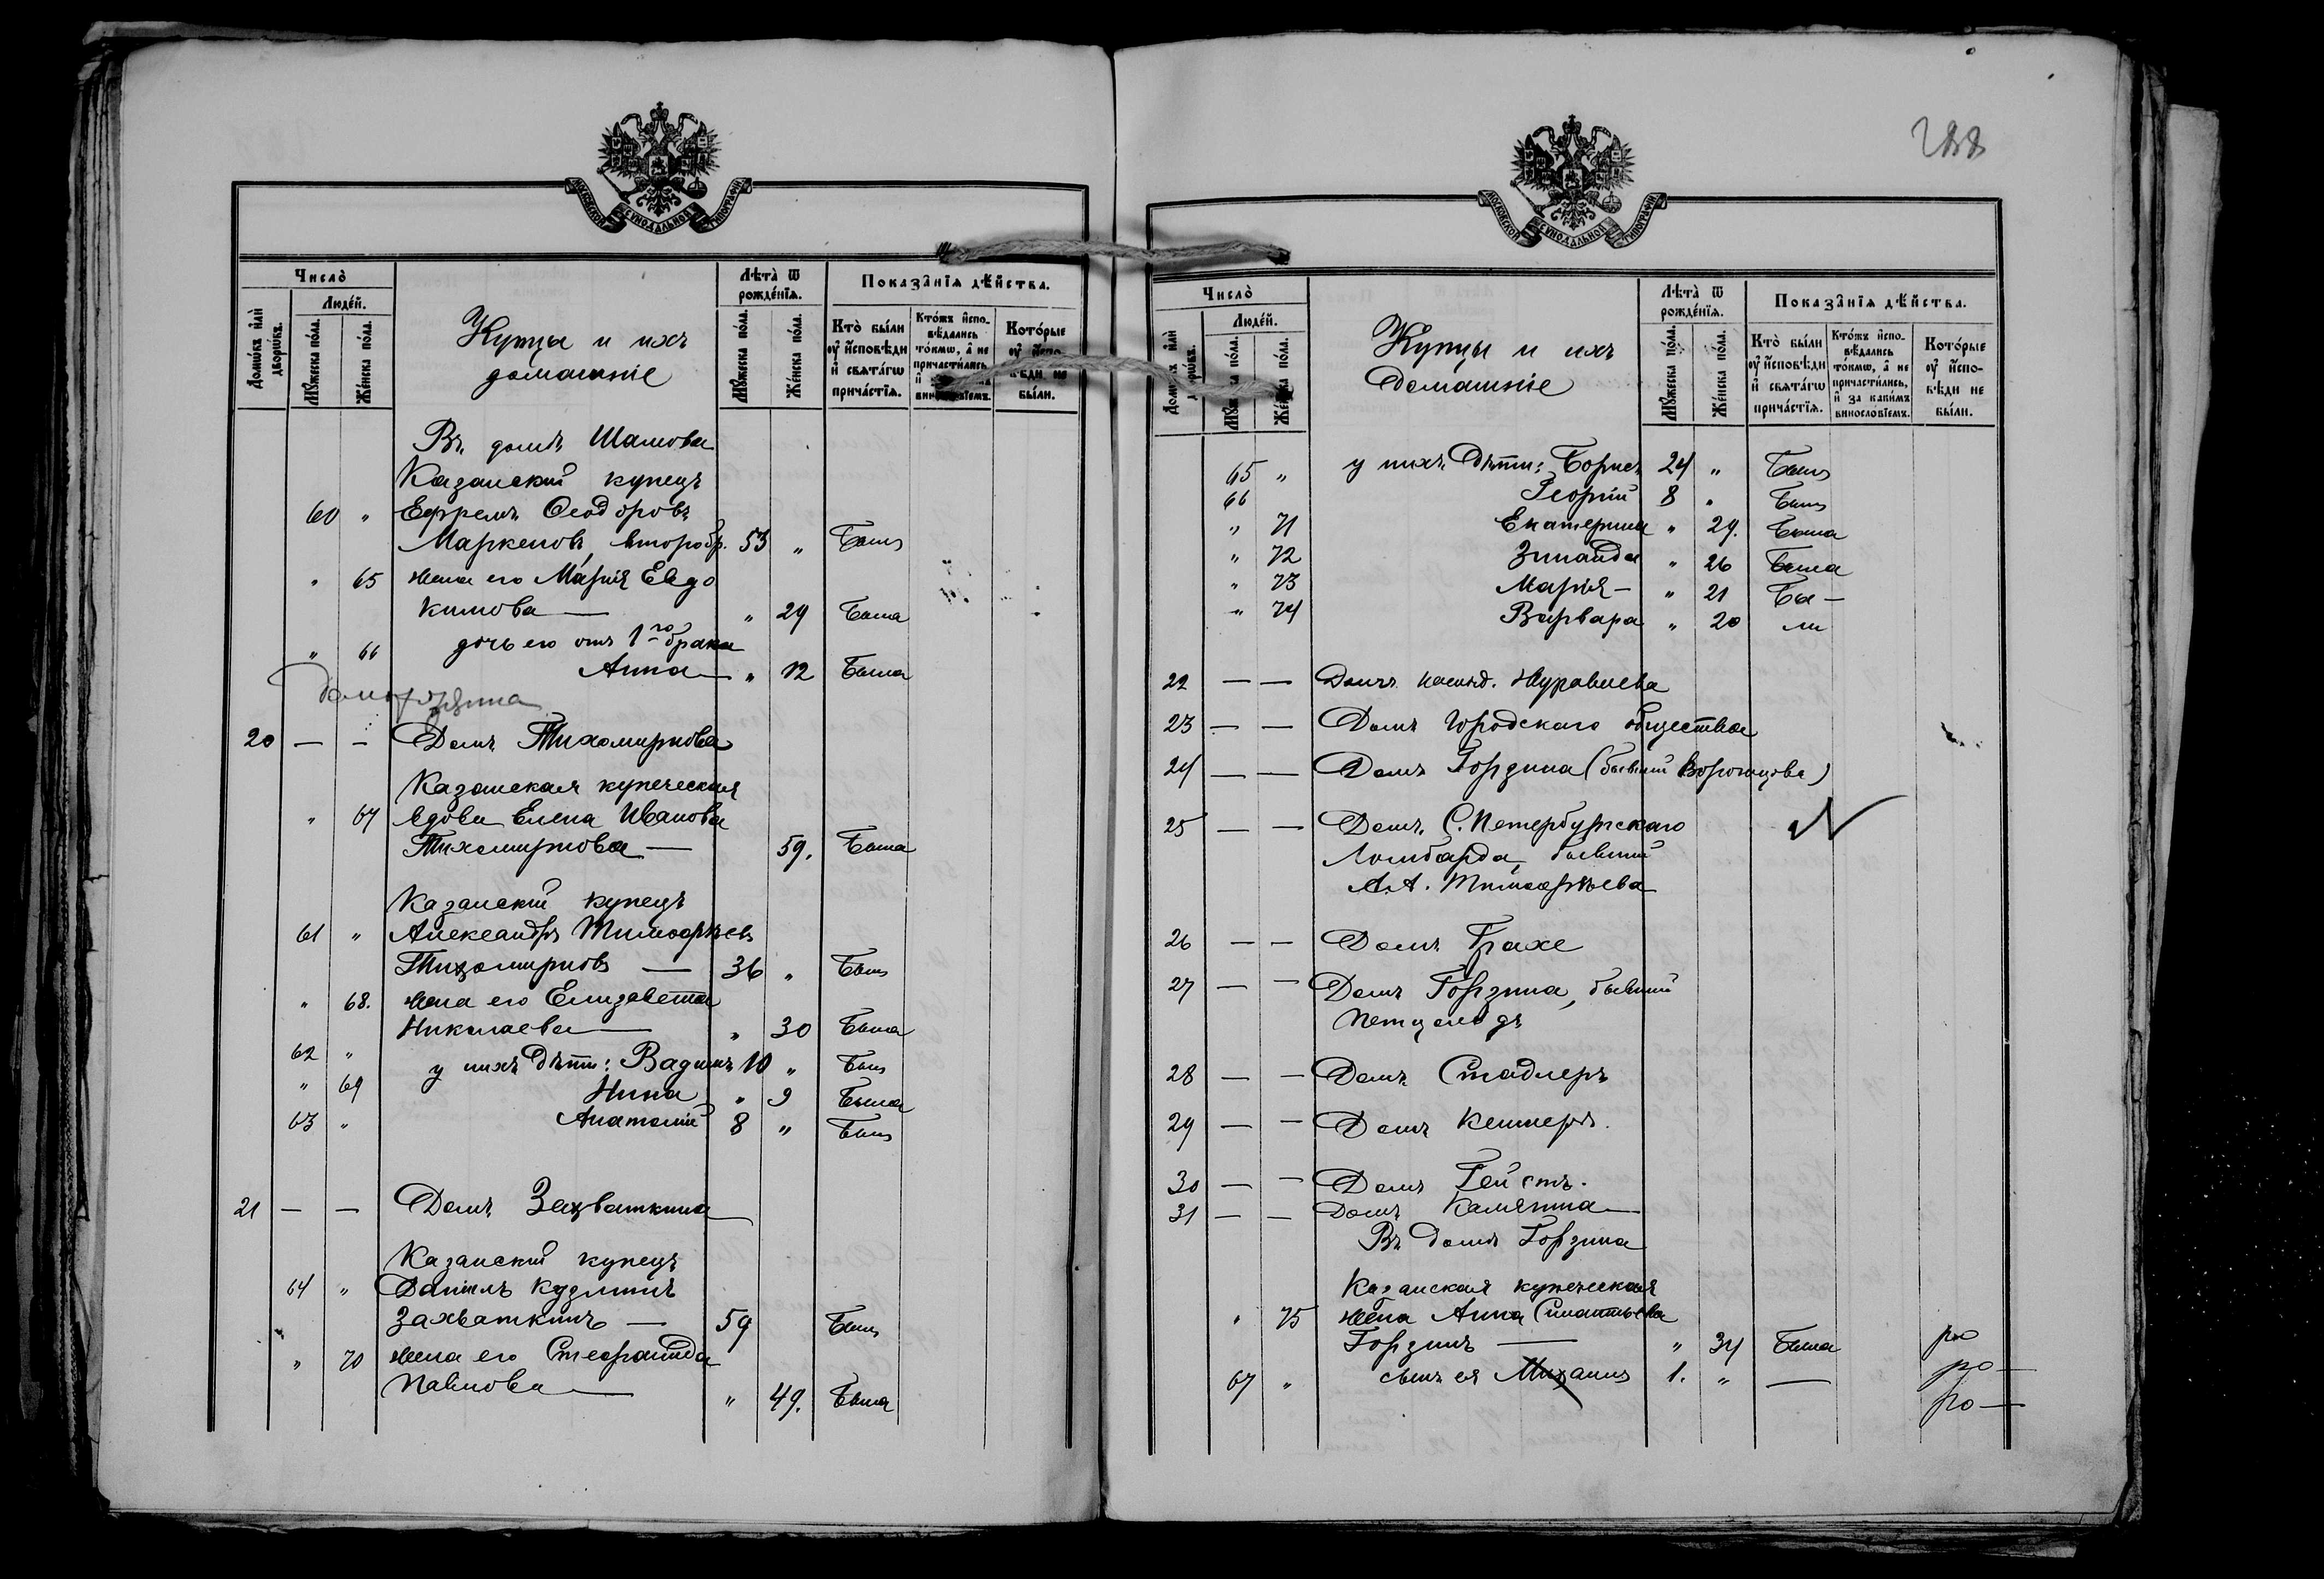 МОСКОВСКОЙ СѴНОДАЛЬНОЙ ТИПОГРАФІИ
Число̀
Домѡ́въ и҆лѝ дворѡ́въ.
Люде́й.
Мꙋ́жеска по́ла.
Же́нска по́ла.
Купцы и ихъ
домашніе
Лѣта̀ ѿ рожде́нїѧ.
Мꙋ́жеска по́ла.
Же́нска по́ла.
Показа̑нїѧ дѣ́йства.
Кто̀ бы́ли ᲂу҆ и҆́сповѣди и҆ свѧта́гѡ прича́стїѧ.
Кто́жъ и҆спо-
вѣ́дались
то́кмѡ, а҆ не
причасти́лись,
Кото́рые ᲂу҆ и҆́спо-
вѣди не бы́ли.
Въ домѣ Шамова
Казанскій купецъ
60 " Ефремъ Ѳеодоровъ
Маркеловъ, второбр. 53 " Былъ
" 65 жена его Марія Евдо
кимова — " 29 Была
" 66 дочь его отъ 1го брака
Анна — " 12 Была
20 — — Домъ Тихомирнова
Казанская купеческая
" 67 вдова Елена Иванова
Тихомирнова — 59. Была
Казанскій купецъ
61 " Александръ Тимоѳеевъ
Тихомирновъ — 36 " Былъ
" 68. жена его Елизавета
Николаева — " 30 Была
62 " у нихъ дѣти: Вадимъ 10 " Былъ
" 69 Нина " 9 Была
63 " Анатолій 8 " Былъ
21 — — Домъ Захваткина —
Казанскій купецъ
64 " Даніилъ Кузминъ
Захваткинъ — 59 Былъ
" 70 жена его Стефанида
Павлова — " 49. Была
288
МОСКОВСКОЙ СѴНОДАЛЬНОЙ ТИПОГРАФІИ
Число̀
Домѡ́въ и҆лѝ дворѡ́въ.
Люде́й.
Мꙋ́жеска по́ла.
Же́нска по́ла.
Купцы и ихъ
домашніе
Лѣта̀ ѿ рожде́нїѧ.
Мꙋ́жеска по́ла.
Же́нска по́ла.
Показа̑нїѧ дѣ́йства.
Кто̀ бы́ли ᲂу҆ и҆́сповѣди и҆ свѧта́гѡ прича́стїѧ.
Кто́жъ и҆спо-
вѣ́дались
то́кмѡ, а҆ не
причасти́лись,
и҆ за каки́мъ
виносло́вїемъ.
Кото́рые ᲂу҆ и҆́спо-
вѣди не бы́ли.
65 " у нихъ дѣти: Борисъ 24 " Былъ
66 Георгій 8 " Былъ
" 71 Екатерина " 29. Была
" 72 Зинаида " 26 Была
" 73 Марія — " 21 Бы —
" 74 Варвара " 20 ли
22 — — Домъ наслѣд. Журавлева
23 — — Домъ Городскаго общества
24 — — Домъ Горзина (бывшій Воронцова)
25 — — Домъ С. Петербургскаго
Ломбарда, бывшій
А.А. Тимоѳеева
26 — — Домъ Грахе
27 — — Домъ Горзина, бывшій
Петцольдъ
28 — — Домъ Стадлеръ
29 — — Домъ Келлеръ.
30 — — Домъ Гейстъ.
31 — — Домъ Калягина —
Въ домѣ Горзина
Казанская купеческая
" 75 жена Анна Силантьева
Горзинъ — " 34 Была
67 " сынъ ея Михаилъ 1. " —